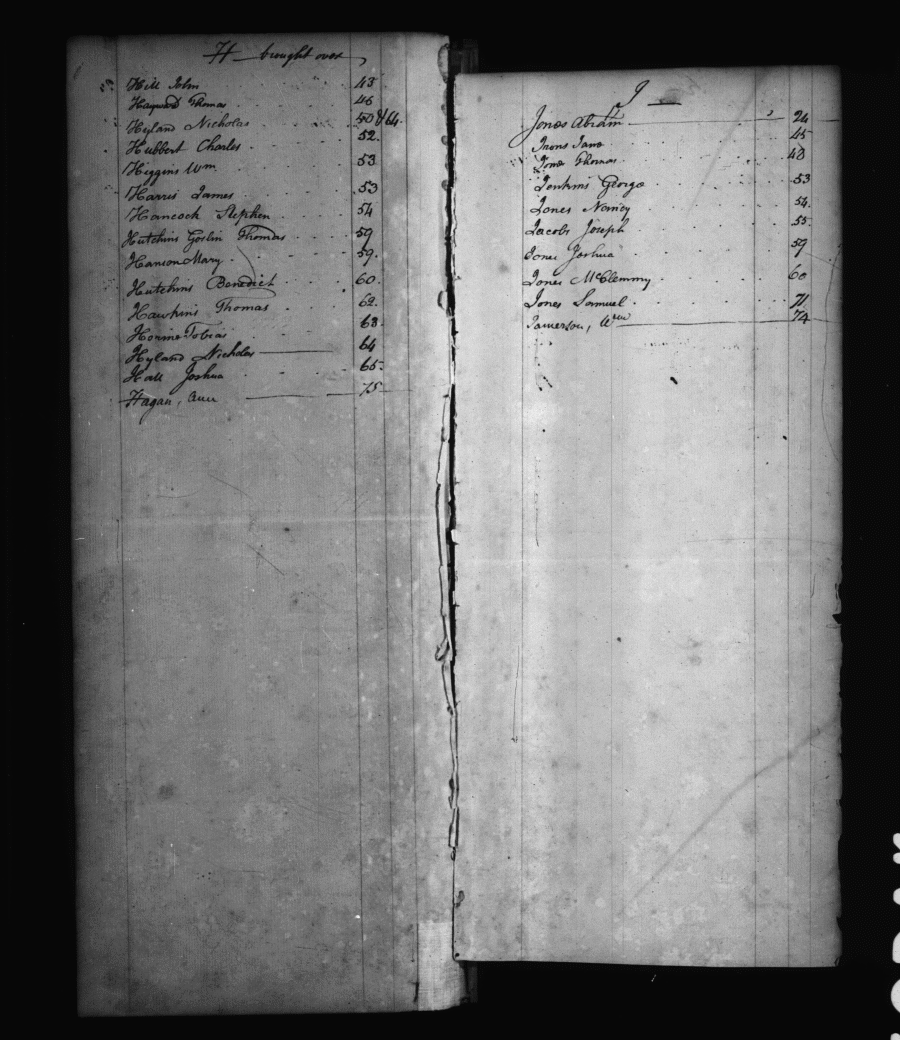 H brought over
Hill John 43
Hayward Thomas 46
Hyland Nicholas 50 & 64
Hubbert Charles 52
Higgins Wm 53
Harris James 53
Hancock Stephen 54
Hutchins Goslin Thomas 59
Hanson Mary 59
Hutchins Benedict 60
Hawkins Thomas 62
Horine Tobias 63
Hyland Nicholas 64
Hall Joshua 65
Hagan, Ann 75
J
Jones Abram 24
Irons Jane 45
Jones Thomas 48
Jenkins George 53
Jones Nancy 54
Jacobs Joseph 55
Jones Joshua 59
Jones McClemmy 60
Jones Samuel 71
Jamerson, Wm 74